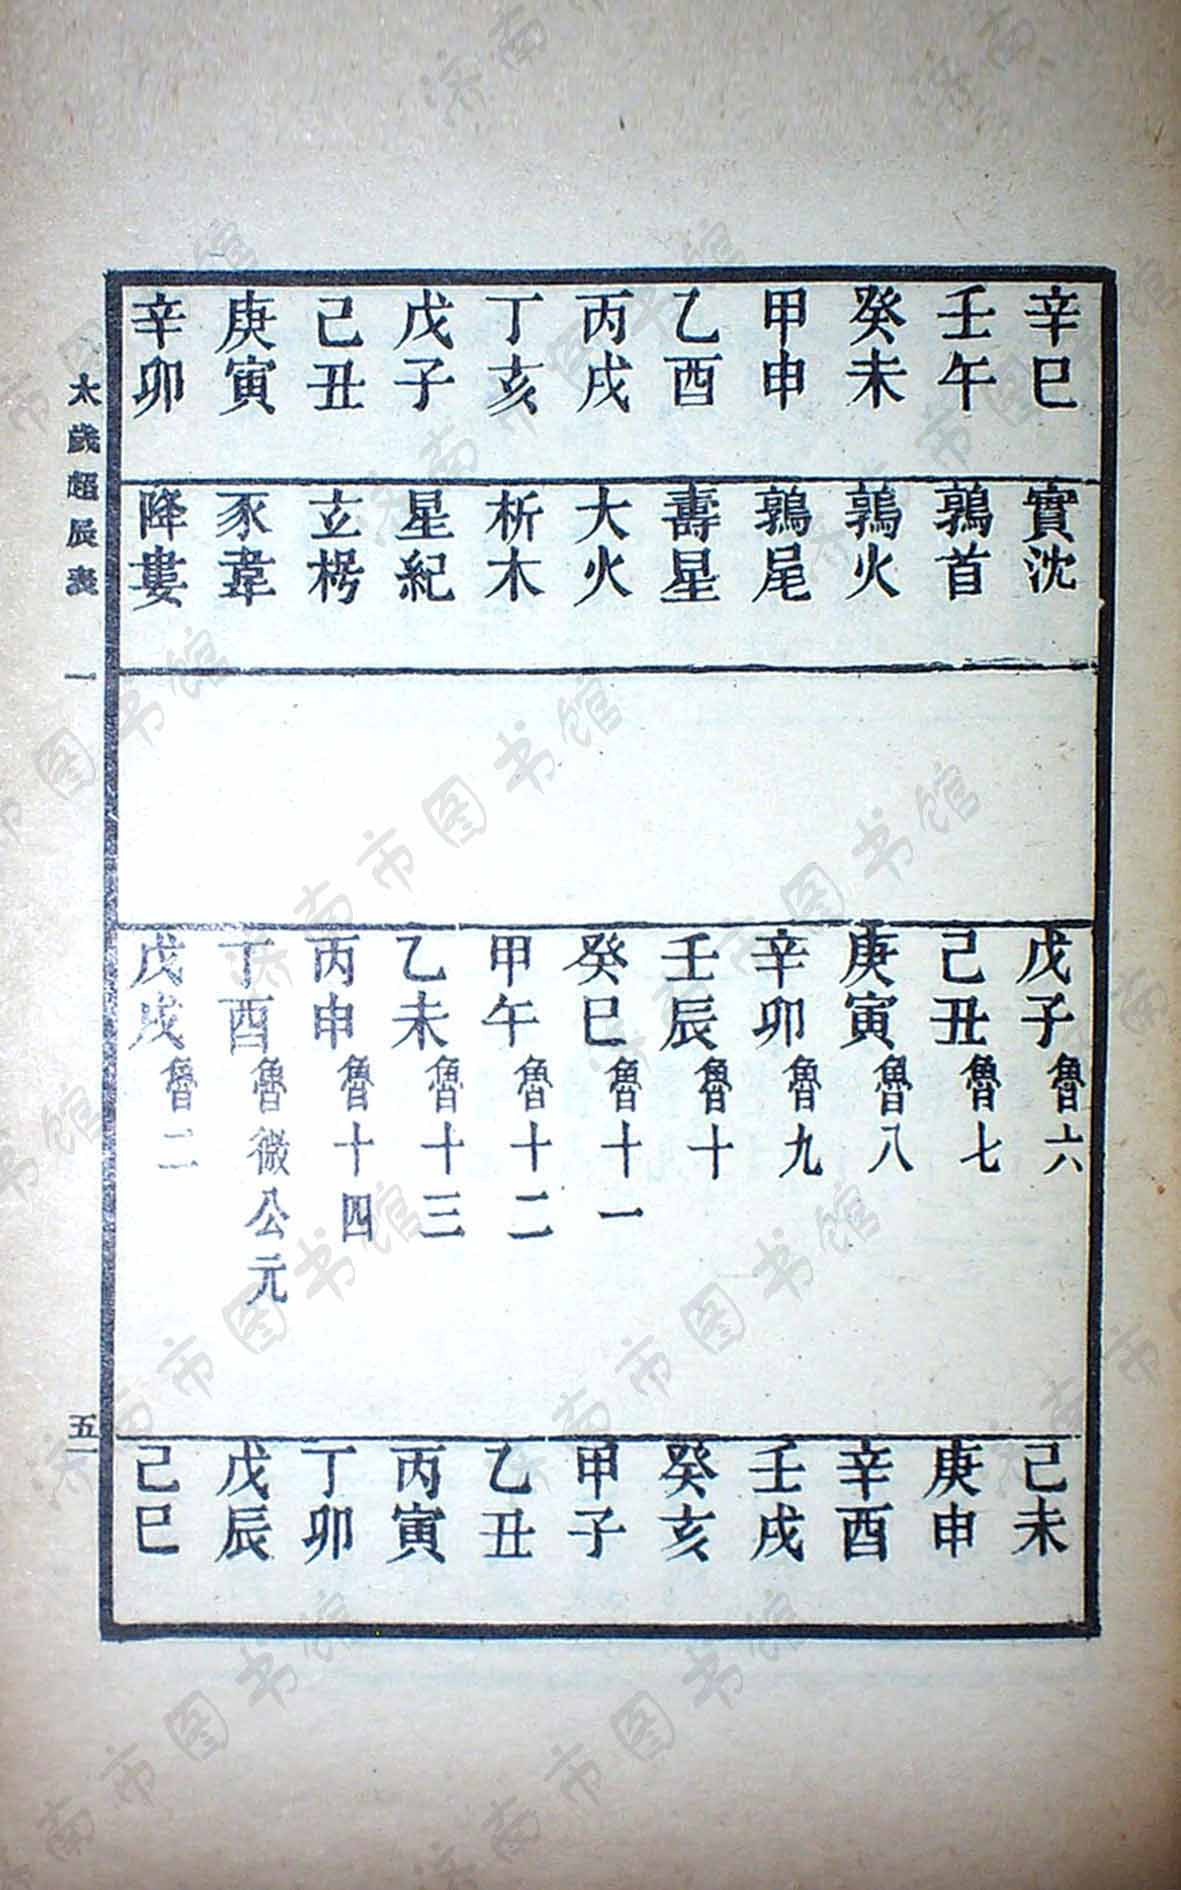 辛巳 實沈 戊子魯六 己未
壬午 鶉首 己丑魯七 庚申
癸未 鶉火 庚寅魯八 辛酉
甲申 鶉尾 辛卯魯九 壬戌
乙酉 壽星 壬辰魯十 癸亥
丙戌 大火 癸巳魯十一 甲子
丁亥 析木 甲午魯十二 乙丑
戊子 星紀 乙未魯十三 丙寅
己丑 玄枵 丙申魯十四 丁卯
庚寅 豕韋 丁酉魯微公元 戊辰
辛卯 降婁 戊戌魯二 己巳
太歲超辰表 一 五一
济南市图书馆